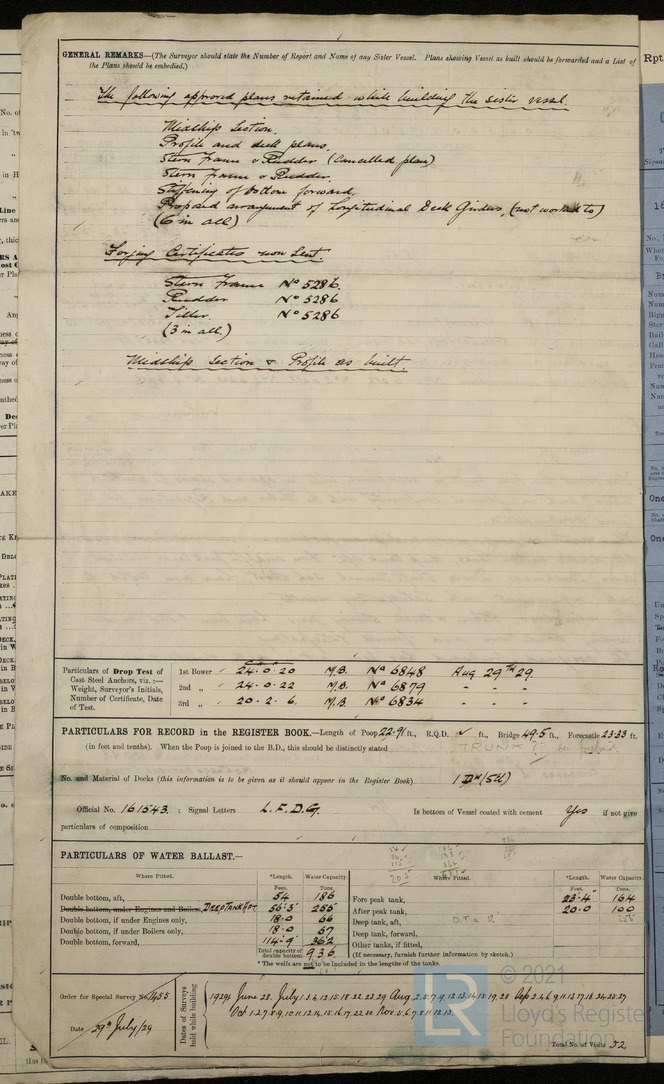 GENERAL REMARKS—(The Surveyor should state the Number of Report and Name of any Sister Vessel. Plans showing Vessel as built should be forwarded and a List of
the Plans should be embodied.)
The following approved plans retained while building the sister vessel.
Midship Section.
Profile and deck plans.
Stern Frame & Rudder (Cancelled plan)
Stern Frame & Rudder.
Stiffening of bottom forward.
Proposed arrangement of Longitudinal Deck Girders, (not worked to)
(6 in all)
Forging Certificates now Sent.
Stern Frame No 5286.
Rudder No 5286
Tiller No 5286
(3 in all)
Midship Section & Profile as built.
Particulars of Drop Test of
Cast Steel Anchors, viz.:—
Weight, Surveyor's Initials,
Number of Certificate, Date
of Test.
1st Bower 24-0-20 M.B. No 6848 Aug 29TH 29.
2nd „ 24-0-22 M.B. No 6879 - - -
3rd „ 20-2-6. M.B. No 6834 - - -
PARTICULARS FOR RECORD in the REGISTER BOOK.—Length of Poop 22.91 ft., R.Q.D. ✓ ft., Bridge 49.5 ft., Forecastle 23.33 ft.
(in feet and tenths). When the Poop is joined to the B.D., this should be distinctly stated TRUNK?
No. and Material of Decks (this information is to be given as it should appear in the Register Book) 1 DK (Stl)
Official No. 161543. ; Signal Letters L.F.D.G. Is bottom of Vessel coated with cement Yes if not give
particulars of composition
PARTICULARS OF WATER BALLAST.—
Where Fitted. *Length. Water Capacity. Where Fitted. *Length. Water Capacity.
Feet. Tons. Feet. Tons.
Double bottom, aft, 54 186
Double bottom, under Engines and Boilers, DEEP TANK AFT. 56-3 255
Double bottom, if under Engines only, 18-0 66
Double bottom, if under Boilers only, 18-0 67
Double bottom, forward, 114-9 362
Total capacity of double bottom 936
Fore peak tank, 23-4 164
After peak tank, 20-0 100
Deep tank, aft,
Deep tank, forward,
Other tanks, if fitted,
(If necessary, furnish further information by sketch.)
* The wells are not to be included in the lengths of the tanks.
Order for Special Survey No. 1455
Date 29th July/29
Dates of Surveys
held while building
1929: June 28. July 1.2.4.12.15.18.22.23.29 Aug
Total No. of Visits 52
© 2021
Lloyd's Register
Foundation
LR